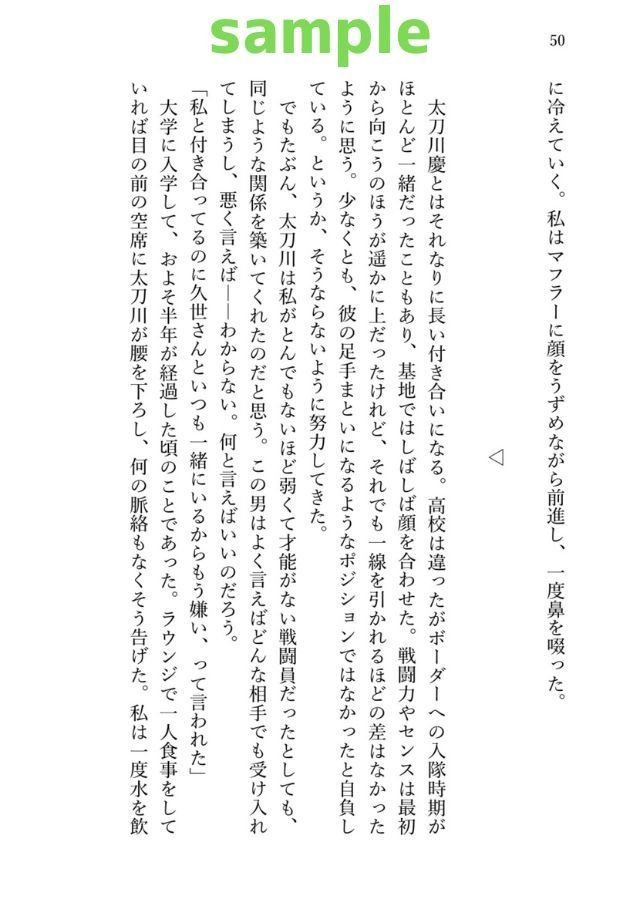 sample
50
に冷えていく。私はマフラーに顔をうずめながら前進し、一度鼻を啜った。
◁
太刀川慶とはそれなりに長い付き合いになる。高校は違ったがボーダーへの入隊時期が
ほとんど一緒だったこともあり、基地ではしばしば顔を合わせた。戦闘力やセンスは最初
から向こうのほうが遥かに上だったけれど、それでも一線を引かれるほどの差はなかった
ように思う。少なくとも、彼の足手まといになるようなポジションではなかったと自負し
ている。というか、そうならないように努力してきた。
でもたぶん、太刀川は私がとんでもないほど弱くて才能がない戦闘員だったとしても、
同じような関係を築いてくれたのだと思う。この男はよく言えばどんな相手でも受け入れ
てしまうし、悪く言えば――わからない。何と言えばいいのだろう。
「私と付き合ってるのに久世さんといつも一緒にいるからもう嫌い、って言われた」
大学に入学して、およそ半年が経過した頃のことであった。ラウンジで一人食事をして
いれば目の前の空席に太刀川が腰を下ろし、何の脈絡もなくそう告げた。私は一度水を飲